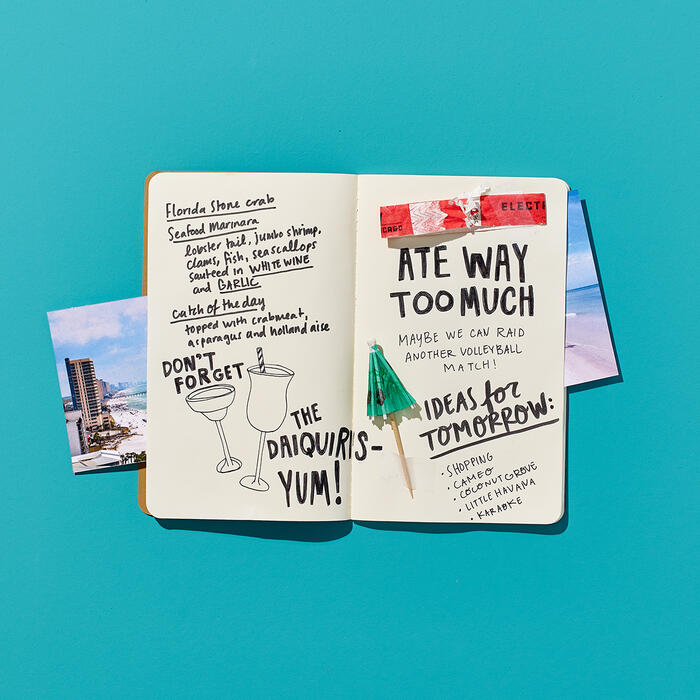 Florida Stone crab
Seafood Marinara
lobster tail, jumbo shrimp,
clams, fish, sea scallops
sauteed in WHITE WINE
and GARLIC
Catch of the day
topped with crabmeat,
asparagus and hollandaise
DON'T
FORGET
THE
DAIQUIRIS-
YUM!
CAGO
ELECTI
ATE WAY
TOO MUCH
MAYBE WE CAN RAID
ANOTHER VOLLEYBALL
MATCH!
IDEAS for
TOMORROW:
· SHOPPING
· CAMEO
· COCONUT GROVE
· LITTLE HAVANA
· KARAOKE